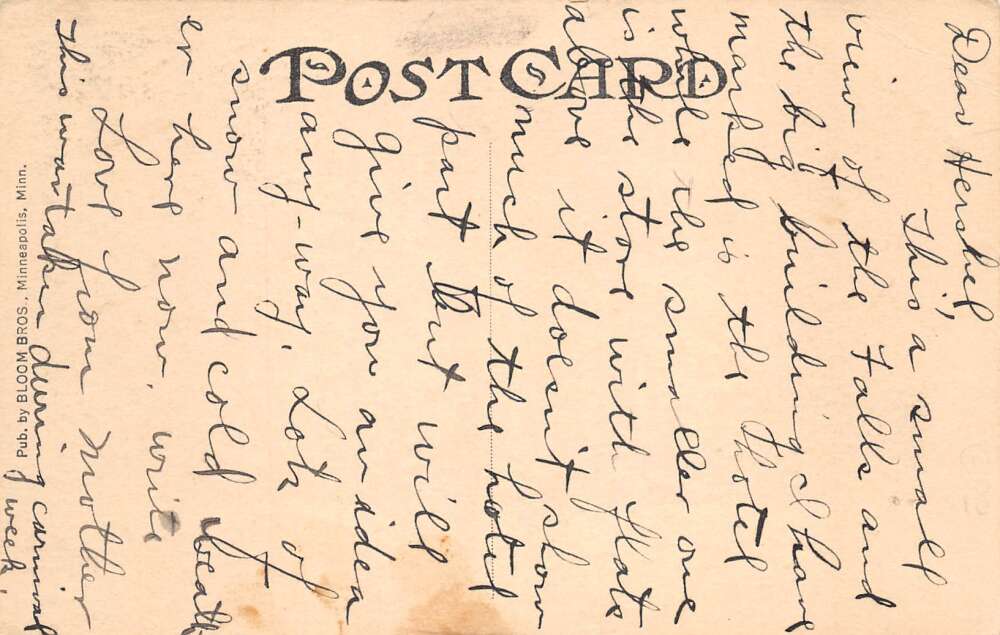 POST CARD
Dear Hershel,
This a small
view of the Falls and
the big building I have
marked is the Hotel
while the smaller one
is the store with flats
above it doesn't show
much of the hotel
part but will
give you an idea
any-way. Lots of
snow and cold weath
er here now. write
Love from Mother
This was taken during carnival
week.
Pub. by BLOOM BROS. Minneapolis, Minn.